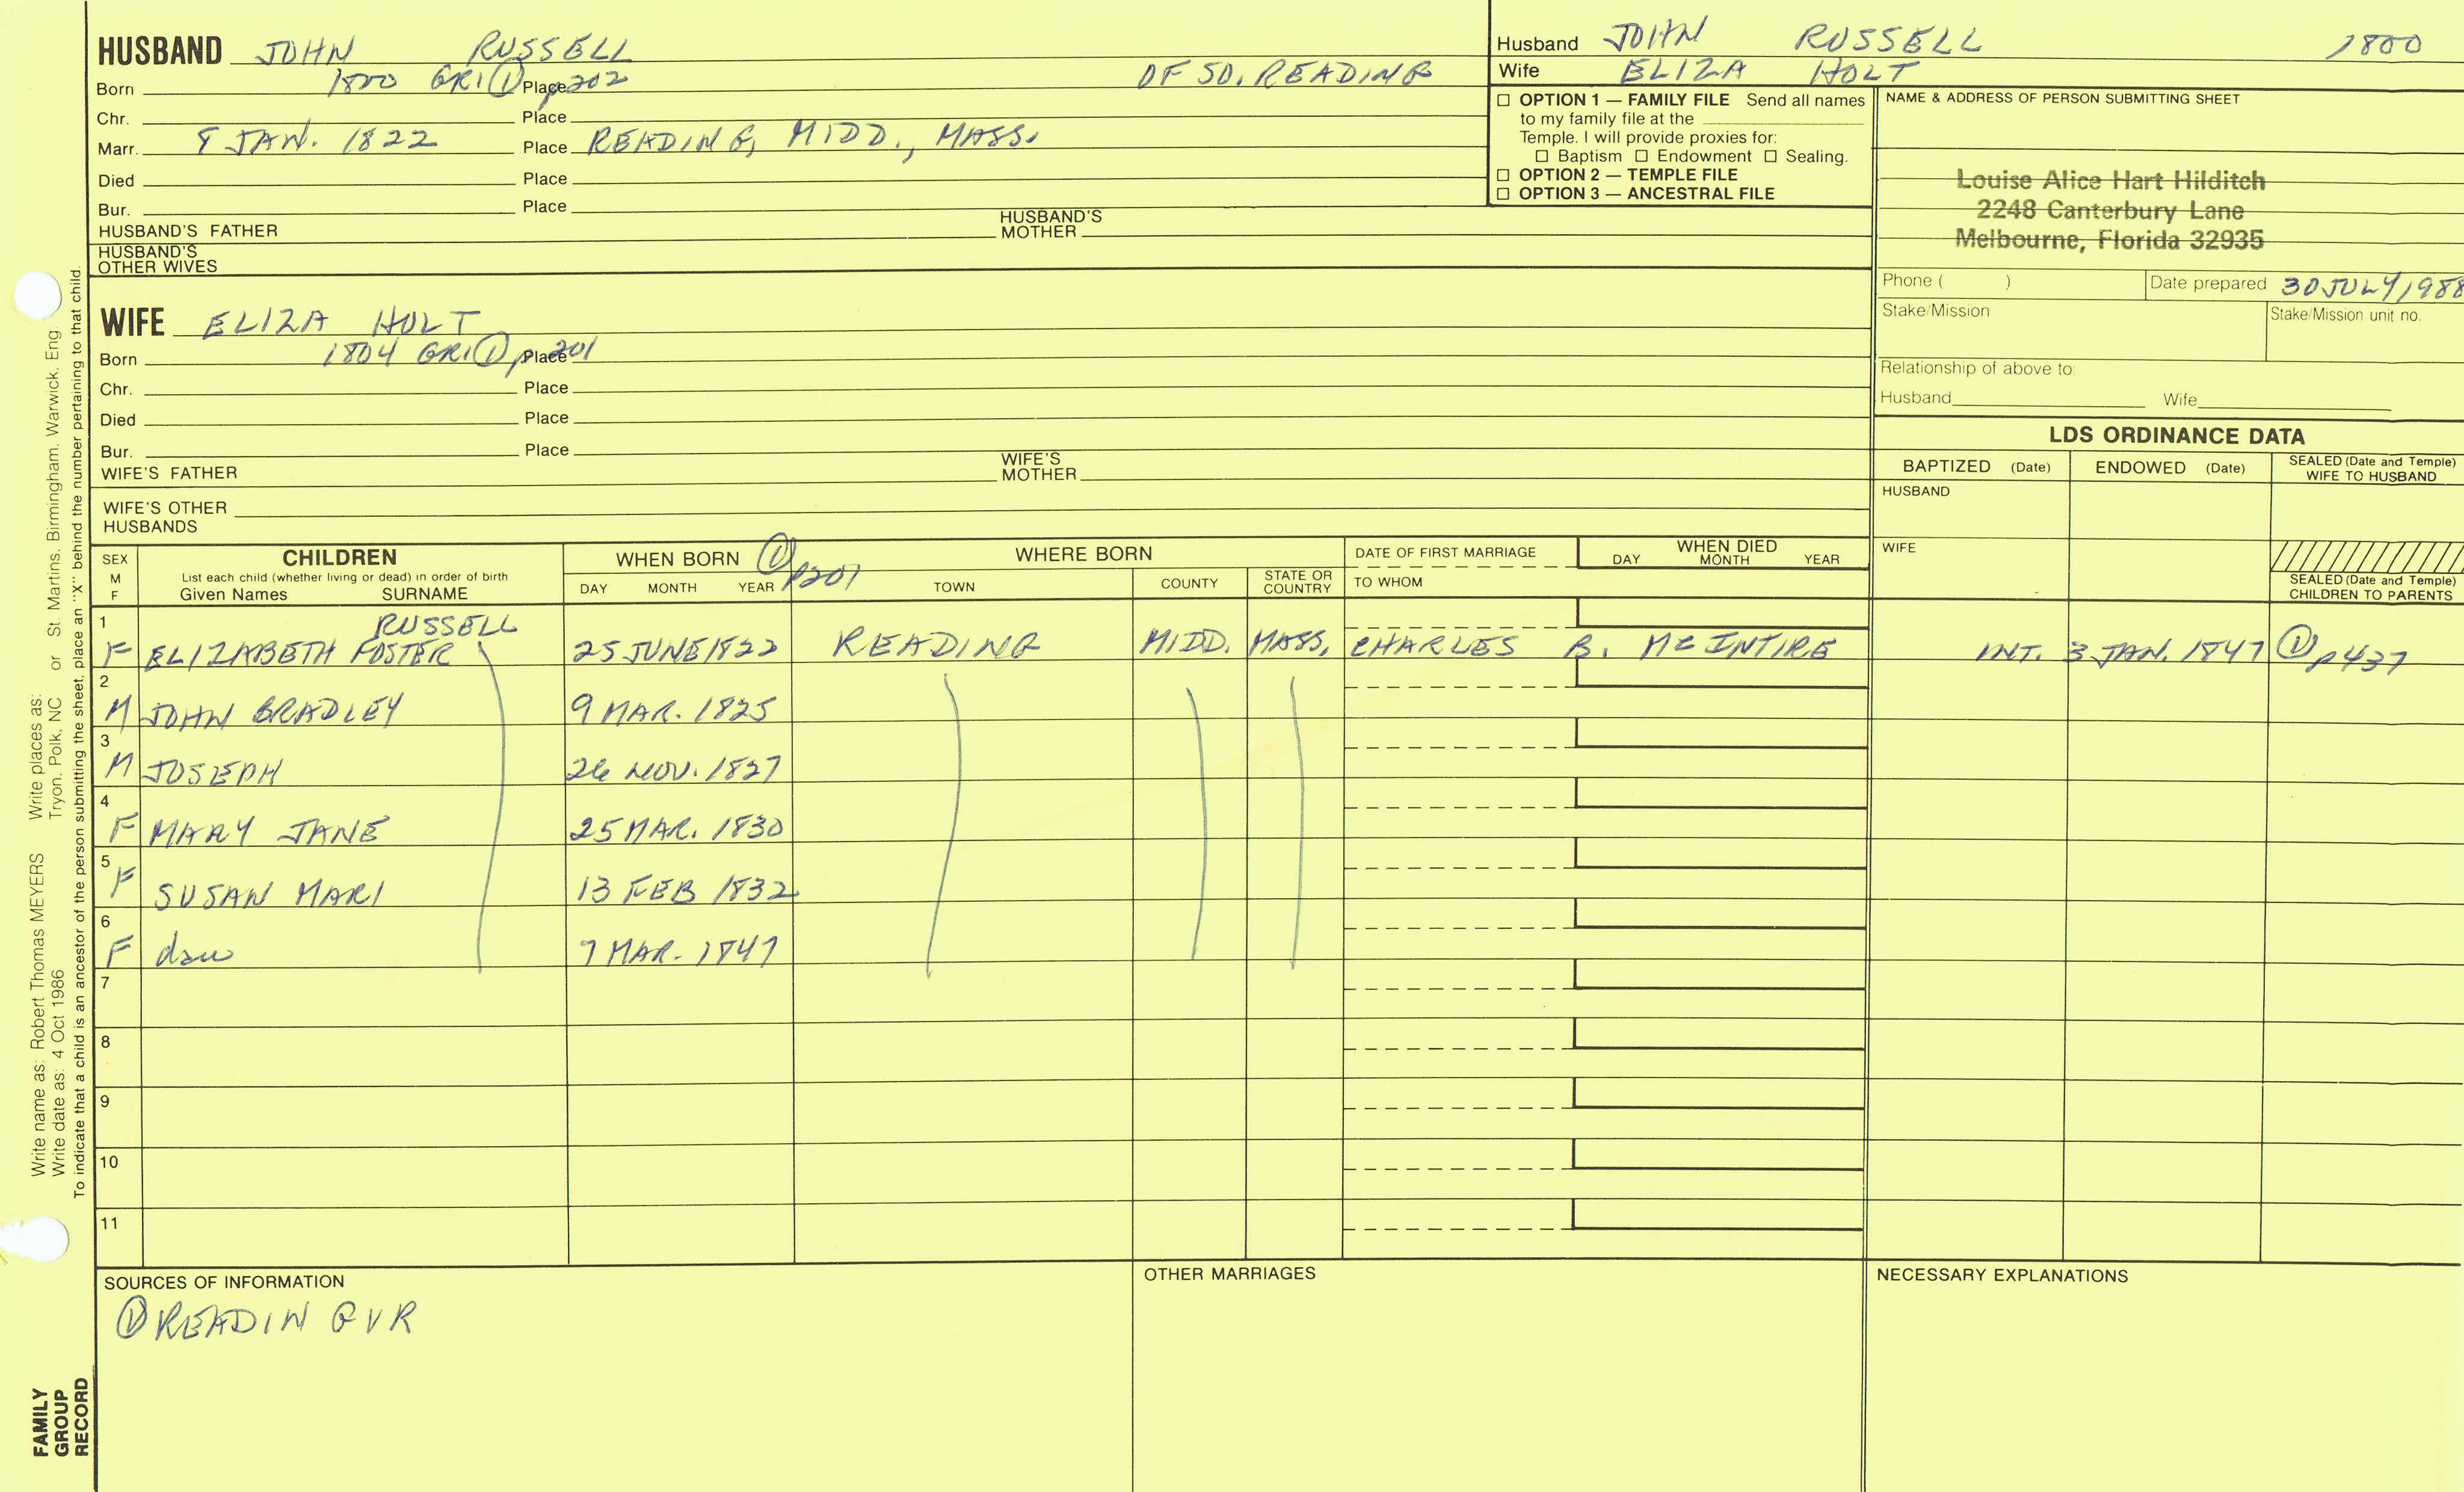 HUSBAND JOHN RUSSELL
Born 1800 GRI ① p202 Place OF SO. READING
Chr. Place
Marr. 8 JAN. 1822 Place READING, MIDD., MASS.
Died Place
Bur. Place
HUSBAND'S FATHER HUSBAND'S MOTHER
HUSBAND'S OTHER WIVES
Husband JOHN RUSSELL 1800
Wife ELIZA HOLT
☐ OPTION 1 — FAMILY FILE Send all names
to my family file at the
Temple. I will provide proxies for:
☐ Baptism ☐ Endowment ☐ Sealing.
☐ OPTION 2 — TEMPLE FILE
☐ OPTION 3 — ANCESTRAL FILE
NAME & ADDRESS OF PERSON SUBMITTING SHEET
Louise Alice Hart Hilditch
2248 Canterbury Lane
Melbourne, Florida 32935
Phone ( ) Date prepared 30 JULY 1988
Stake/Mission Stake/Mission unit no.
Relationship of above to:
Husband Wife
WIFE ELIZA HOLT
Born 1804 GRI ① p201 Place
Chr. Place
Died Place
Bur. Place
WIFE'S FATHER WIFE'S MOTHER
WIFE'S OTHER HUSBANDS
LDS ORDINANCE DATA
BAPTIZED (Date) ENDOWED (Date) SEALED (Date and Temple) WIFE TO HUSBAND
HUSBAND
WIFE
SEALED (Date and Temple) CHILDREN TO PARENTS
SEX M F
CHILDREN
List each child (whether living or dead) in order of birth
Given Names SURNAME
WHEN BORN ① p201
DAY MONTH YEAR
WHERE BORN
TOWN COUNTY STATE OR COUNTRY
DATE OF FIRST MARRIAGE
TO WHOM
WHEN DIED
DAY MONTH YEAR
1 RUSSELL
F ELIZABETH FOSTER 25 JUNE 1822 READING MIDD. MASS. CHARLES B. McINTIRE INT. 3 JAN. 1847 ① p437
2
M JOHN BRADLEY 9 MAR. 1825
3
M JOSEPH 26 NOV. 1827
4
F MARY JANE 25 MAR. 1830
5
F SUSAN MARI 13 FEB 1832
6
F dau 7 MAR. 1847
7
8
9
10
11
SOURCES OF INFORMATION
① READING VR
OTHER MARRIAGES
NECESSARY EXPLANATIONS
Write name as: Robert Thomas MEYERS Write places as:
Write date as: 4 Oct 1986 Tryon, Polk, NC or St. Martins, Birmingham, Warwick, Eng
To indicate that a child is an ancestor of the person submitting the sheet, place an "X" behind the number pertaining to that child.
FAMILY
GROUP
RECORD